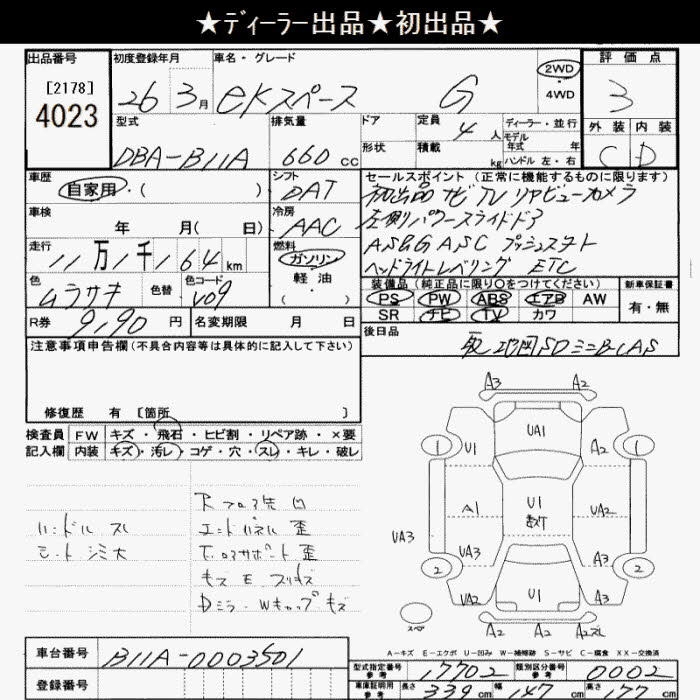 ★ディーラー出品★初出品★
出品番号 初度登録年月 車名・グレード 評価点
[2178] 26年 3月 eKスペース G 2WD・4WD 3
4023
型式 排気量 ドア 定員 4人 ディーラー・並行 外装 内装
モデル年式 年
DBA-B11A 660cc 形状 積載 kg ハンドル 左・右 C D
車歴 シフト セールスポイント (正常に機能するものに限ります)
自家用・( ) DAT 初出品 ナビ TV リヤビューカメラ
車検 冷房 左側パワースライドドア
年 月( 日) AAC AS&G ASC プッシュスタート
走行 燃料 ヘッドライトレベリング ETC
11万1千164km ガソリン
軽油
・( )
色 色替 色コード 装備品 (純正品に限り○をつけてください) 新車保証書
ムラサキ V09 PS PW ABS エアB AW 有・無
SR ナビ TV カワ
R券 9,190円 名変期限 月 日 後日品
注意事項申告欄(不具合内容等は具体的に記入して下さい) 取説 SD ミニB-CAS
修復歴 有 [箇所 ]
検査員 FW キズ・飛石・ヒビ割・リペア跡・×要
記入欄 内装 キズ・汚レ・コゲ・穴・スレ・キレ・破レ
A3 A2
1 U1 UA1 A2 1
A1 U1 UA2
UA3 UA3 A3
2 UA2 U1 A3 2
スペア A2 A2 A2スレ
凹
ハンドル スレ エンドパネル 歪
シート シミ大 サポート 歪
Dミラー・Wキャップ キズ
A-キズ E-エクボ U-凹み W-補修跡 S-サビ C-腐食 XX-交換済
車台番号 B11A-0003501
型式指定番号 参考 17702 類別区分番号 参考 0002
登録番号
車庫証明用 参考 長さ 339cm 幅 147cm 高さ 177cm